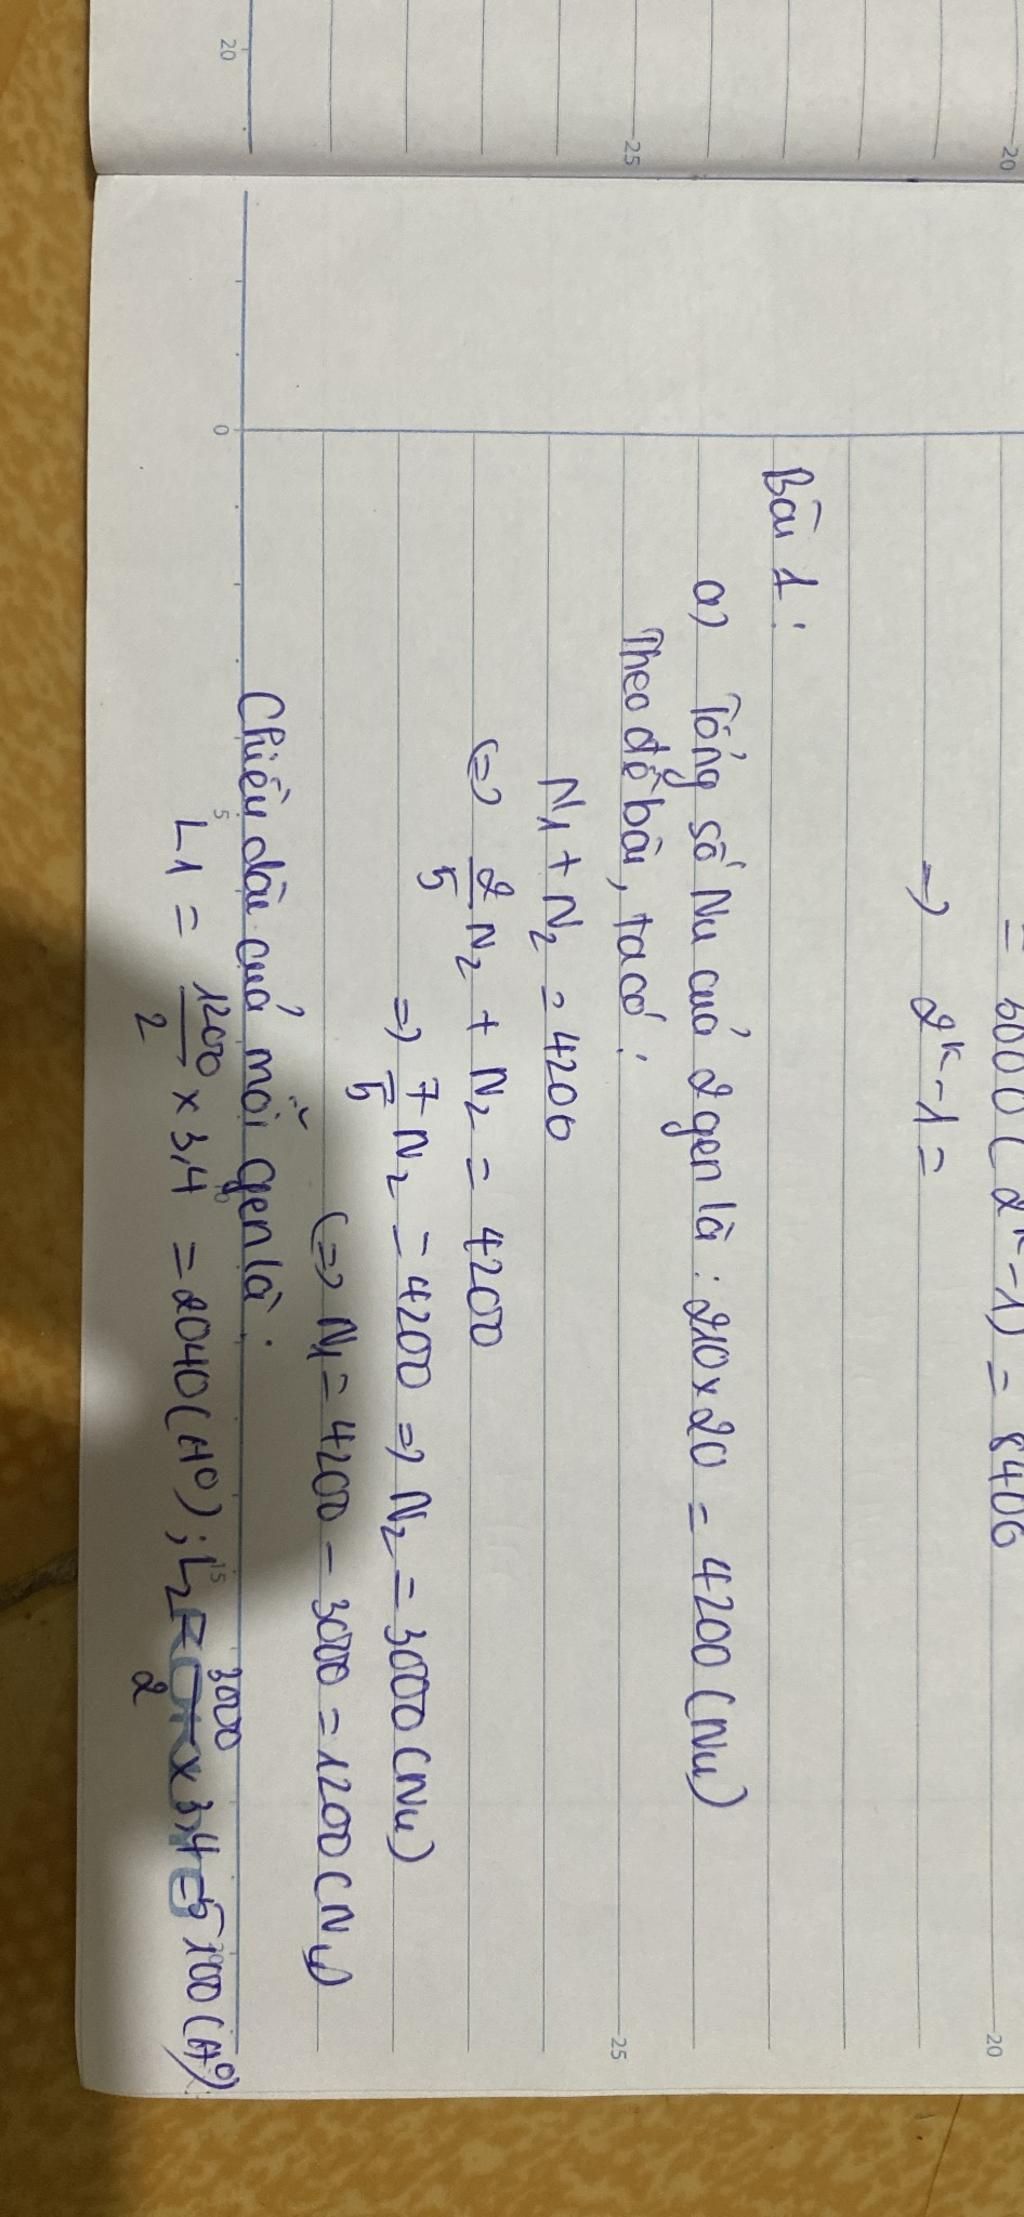 = 6000(2ᵏ-1) = 8406
=> 2ᵏ-1 =
Bài 1:
a) Tổng số Nu của 2 gen là : 210 × 20 = 4200 (Nu)
Theo đề bài, ta có:
N₁ + N₂ = 4200
(=) 2/5 N₂ + N₂ = 4200
=> 7/5 N₂ = 4200 => N₂ = 3000 (Nu)
(=> N₁ = 4200 - 3000 = 1200 (Nu)
Chiều dài của mỗi gen là :
L₁ = 1200/2 × 3,4 = 2040 (A⁰) ; L₂ = 3000/2 × 3,4 = 5100 (A⁰)
20
25
20
0
5
10
15
25
20